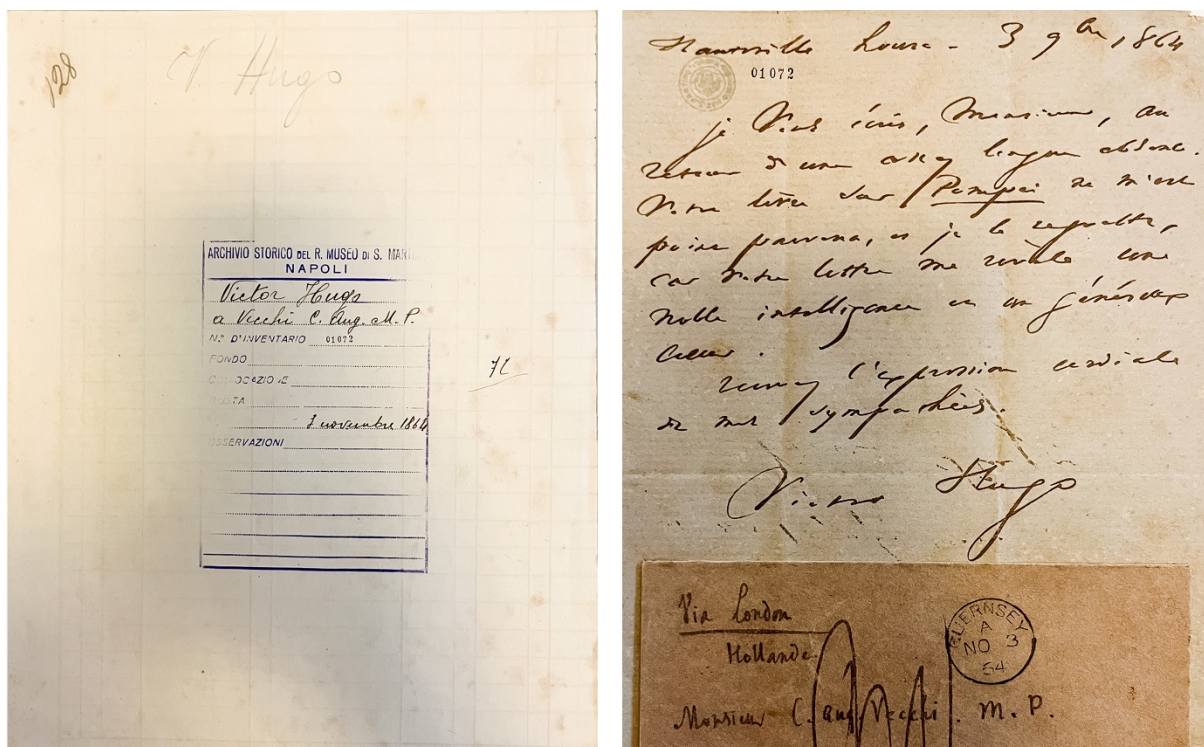 128
V. Hugo
ARCHIVIO STORICO DEL R. MUSEO DI S. MARTI
NAPOLI
Victor Hugo
a Vecchi C. Aug. M. P.
N.° D'INVENTARIO 01072
FONDO
OCAZIONE
3 novembre 1864
OSSERVAZIONI
72
Hauteville house - 3 9bre 1864
01072
je vous écris, Monsieur, au
retour d'une assez longue absence.
Votre livre sur Pompei ne m'est
point parvenu, et je le regrette,
car votre lettre me révèle une
noble intelligence et un généreux
cœur.
recevez l'expression cordiale
de mes sympathies.
Victor Hugo
Via London
Hollande
GUERNSEY
A
NO 3
64
Monsieur C. Aug. Vecchi. M. P.